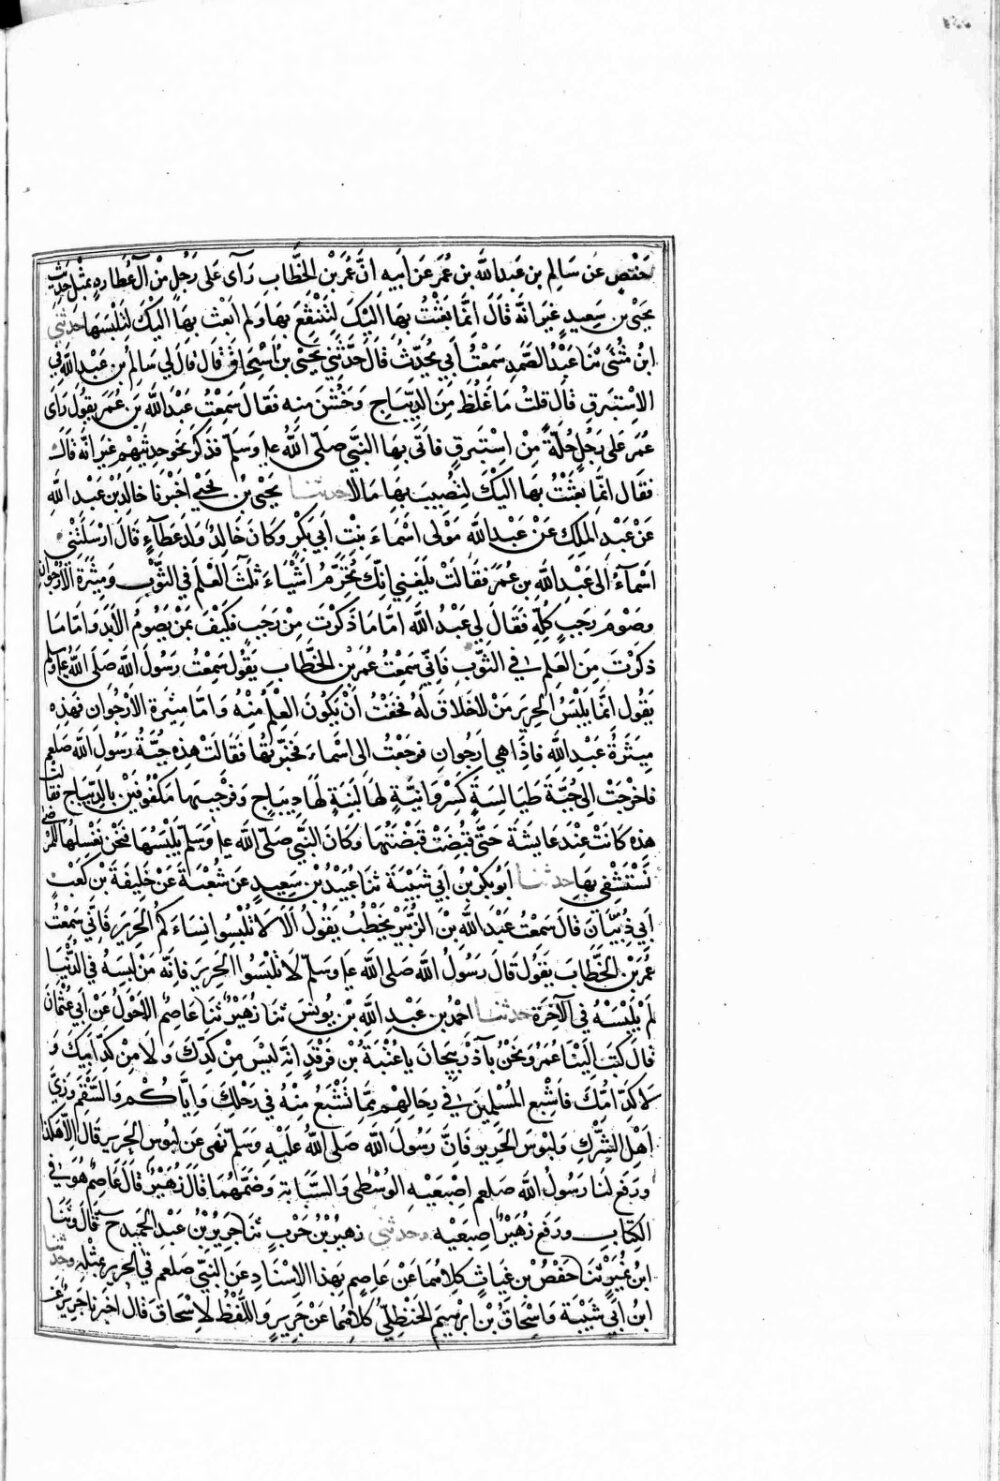 حفص عن سالم بن عبد الله بن عمر عن ابيه ان عمر بن الخطاب رآى على رجل من آل عطارد بمثل حديث
يحيى بن سعيد غير انه قال انما بعثت بها اليك لتنتفع بها ولم ابعث بها اليك لتلبسها حدثني
ابن مثنى ثنا عبد الصمد سمعت ابي يحدث قال حدثني يحيى بن اسحاق قال قال لي سالم بن عبد الله في
الاستبرق قال قلت ما غلظ من الديباج وخشن منه فقال سمعت عبد الله بن عمر يقول رآى
عمر على رجل حلة من استبرق فاتى بها النبي صلى الله عليه وسلم فذكر نحو حديثهم غير انه قال
فقال انما بعثت بها اليك لتصيب بها مالا حدثنا يحيى بن يحيى اخبرنا خالد بن عبد الله
عن عبد الملك عن عبد الله مولى اسماء بنت ابي بكر وكان خال ولد عطاء قال ارسلتني
اسماء الى عبد الله بن عمر فقالت بلغني انك تحرم اشياء ثلث العلم في الثوب وميثرة الارجوان
وصوم رجب كله فقال لي عبد الله اما ما ذكرت من رجب فكيف بمن يصوم الابد واما ما
ذكرت من العلم في الثوب فاني سمعت عمر بن الخطاب يقول سمعت رسول الله صلى الله عليه وسلم
يقول انما يلبس الحرير من لا خلاق له فخفت ان يكون العلم منه واما ميثرة الارجوان فهذه
ميثرة عبد الله فاذا هي ارجوان فرجعت الى اسماء فخبرتها فقالت هذه جبة رسول الله صلعم
فاخرجت الى جبة طيالسة كسروانية لها لبنة لها ديباج وفرجيها مكفوفين بالديباج فقالت
هذه كانت عند عايشة حتى قبضت فلما قبضت قبضتها وكان النبي صلى الله عليه وسلم يلبسها فنحن نغسلها للمرضى
نستشفي بها حدثنا ابو بكر بن ابي شيبة ثنا عبيد بن سعيد عن شعبة عن خليفة بن كعب
ابي ذبيان قال سمعت عبد الله بن الزبير يخطب يقول الا لا تلبسوا نساءكم الحرير فاني سمعت
عمر بن الخطاب يقول قال رسول الله صلى الله عليه وسلم لا تلبسوا الحرير فانه من لبسه في الدنيا
لم يلبسه في الآخرة حدثنا احمد بن عبد الله بن يونس ثنا زهير ثنا عاصم الاحول عن ابي عثمان
قال كتب الينا عمر ونحن بآذربيجان يا عتبة بن فرقد انه ليس من كدك ولا من كد ابيك و
لا كد امك فاشبع المسلمين في رحالهم مما تشبع منه في رحلك واياكم والتنعم وزي
اهل الشرك ولبوس الحرير فان رسول الله صلى الله عليه وسلم نهى عن لبوس الحرير قال الا هكذا
ورفع لنا رسول الله صلعم اصبعيه الوسطى والسبابة وضمهما قال زهير قال عاصم هو في
الكتاب ورفع زهير اصبعيه وحدثني زهير بن حرب ثنا جرير بن عبد الحميد ح قال وثنا
ابن نمير ثنا حفص بن غياث كلاهما عن عاصم بهذا الاسناد عن النبي صلعم في الحرير بمثله وحدثنا
ابن ابي شيبة واسحاق بن ابرهيم الحنظلي كلاهما عن جرير واللفظ لاسحاق قال اخبرنا جرير عن